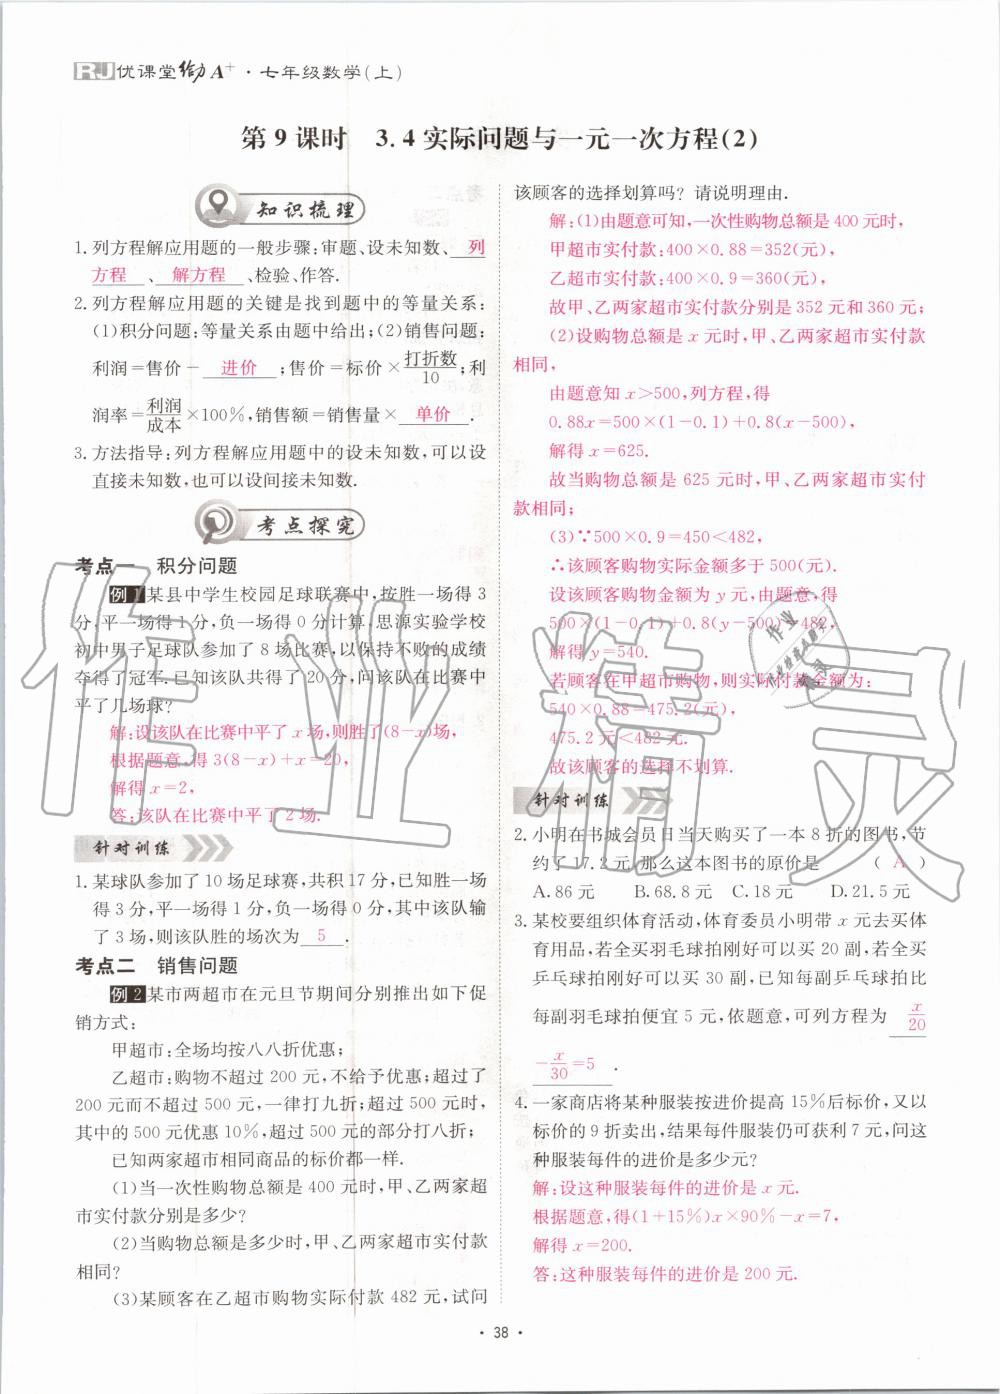 RJ优课堂给力A⁺·七年级数学(上)
第9课时 3.4实际问题与一元一次方程(2)
知识梳理
1.列方程解应用题的一般步骤:审题、设未知数、列
方程、解方程、检验、作答.
2.列方程解应用题的关键是找到题中的等量关系:
(1)积分问题:等量关系由题中给出;(2)销售问题:
利润=售价-进价;售价=标价×打折数/10;利
润率=利润/成本×100%,销售额=销售量×单价.
3.方法指导:列方程解应用题中的设未知数,可以设
直接未知数,也可以设间接未知数.
考点探究
考点一 积分问题
例1 某县中学生校园足球联赛中,按胜一场得3
分,平一场得1分,负一场得0分计算,思源实验学校
初中男子足球队参加了8场比赛,以保持不败的成绩
夺得了冠军.已知该队共得了20分,问该队在比赛中
平了几场球?
解:设该队在比赛中平了x场,则胜了(8-x)场,
根据题意,得3(8-x)+x=20,
解得x=2,
答:该队在比赛中平了2场.
针对训练
1.某球队参加了10场足球赛,共积17分,已知胜一场
得3分,平一场得1分,负一场得0分,其中该队输
了3场,则该队胜的场次为5.
考点二 销售问题
例2 某市两超市在元旦节期间分别推出如下促
销方式:
甲超市:全场均按八八折优惠;
乙超市:购物不超过200元,不给予优惠;超过了
200元而不超过500元,一律打九折;超过500元时,
其中的500元优惠10%,超过500元的部分打八折;
已知两家超市相同商品的标价都一样.
(1)当一次性购物总额是400元时,甲、乙两家超
市实付款分别是多少?
(2)当购物总额是多少时,甲、乙两家超市实付款
相同?
(3)某顾客在乙超市购物实际付款482元,试问
该顾客的选择划算吗?请说明理由.
解:(1)由题意可知,一次性购物总额是400元时,
甲超市实付款:400×0.88=352(元),
乙超市实付款:400×0.9=360(元),
故甲、乙两家超市实付款分别是352元和360元;
(2)设购物总额是x元时,甲、乙两家超市实付款
相同,
由题意知x>500,列方程,得
0.88x=500×(1-0.1)+0.8(x-500),
解得x=625.
故当购物总额是625元时,甲、乙两家超市实付
款相同;
(3)∵500×0.9=450<482,
∴该顾客购物实际金额多于500(元).
设该顾客购物金额为y元,由题意,得
500×(1-0.1)+0.8(y-500)=482,
解得y=540.
若顾客在甲超市购物,则实际付款金额为:
540×0.88=475.2(元),
475.2元<482元.
故该顾客的选择不划算.
针对训练
2.小明在书城会员日当天购买了一本8折的图书,节
约了17.2元,那么这本图书的原价是 (A)
A.86元 B.68.8元 C.18元 D.21.5元
3.某校要组织体育活动,体育委员小明带x元去买体
育用品,若全买羽毛球拍刚好可以买20副,若全买
乒乓球拍刚好可以买30副,已知每副乒乓球拍比
每副羽毛球拍便宜5元,依题意,可列方程为 x/20
-x/30=5.
4.一家商店将某种服装按进价提高15%后标价,又以
标价的9折卖出,结果每件服装仍可获利7元,问这
种服装每件的进价是多少元?
解:设这种服装每件的进价是x元.
根据题意,得(1+15%)x×90%-x=7,
解得x=200.
答:这种服装每件的进价是200元.
·38·
作业精灵